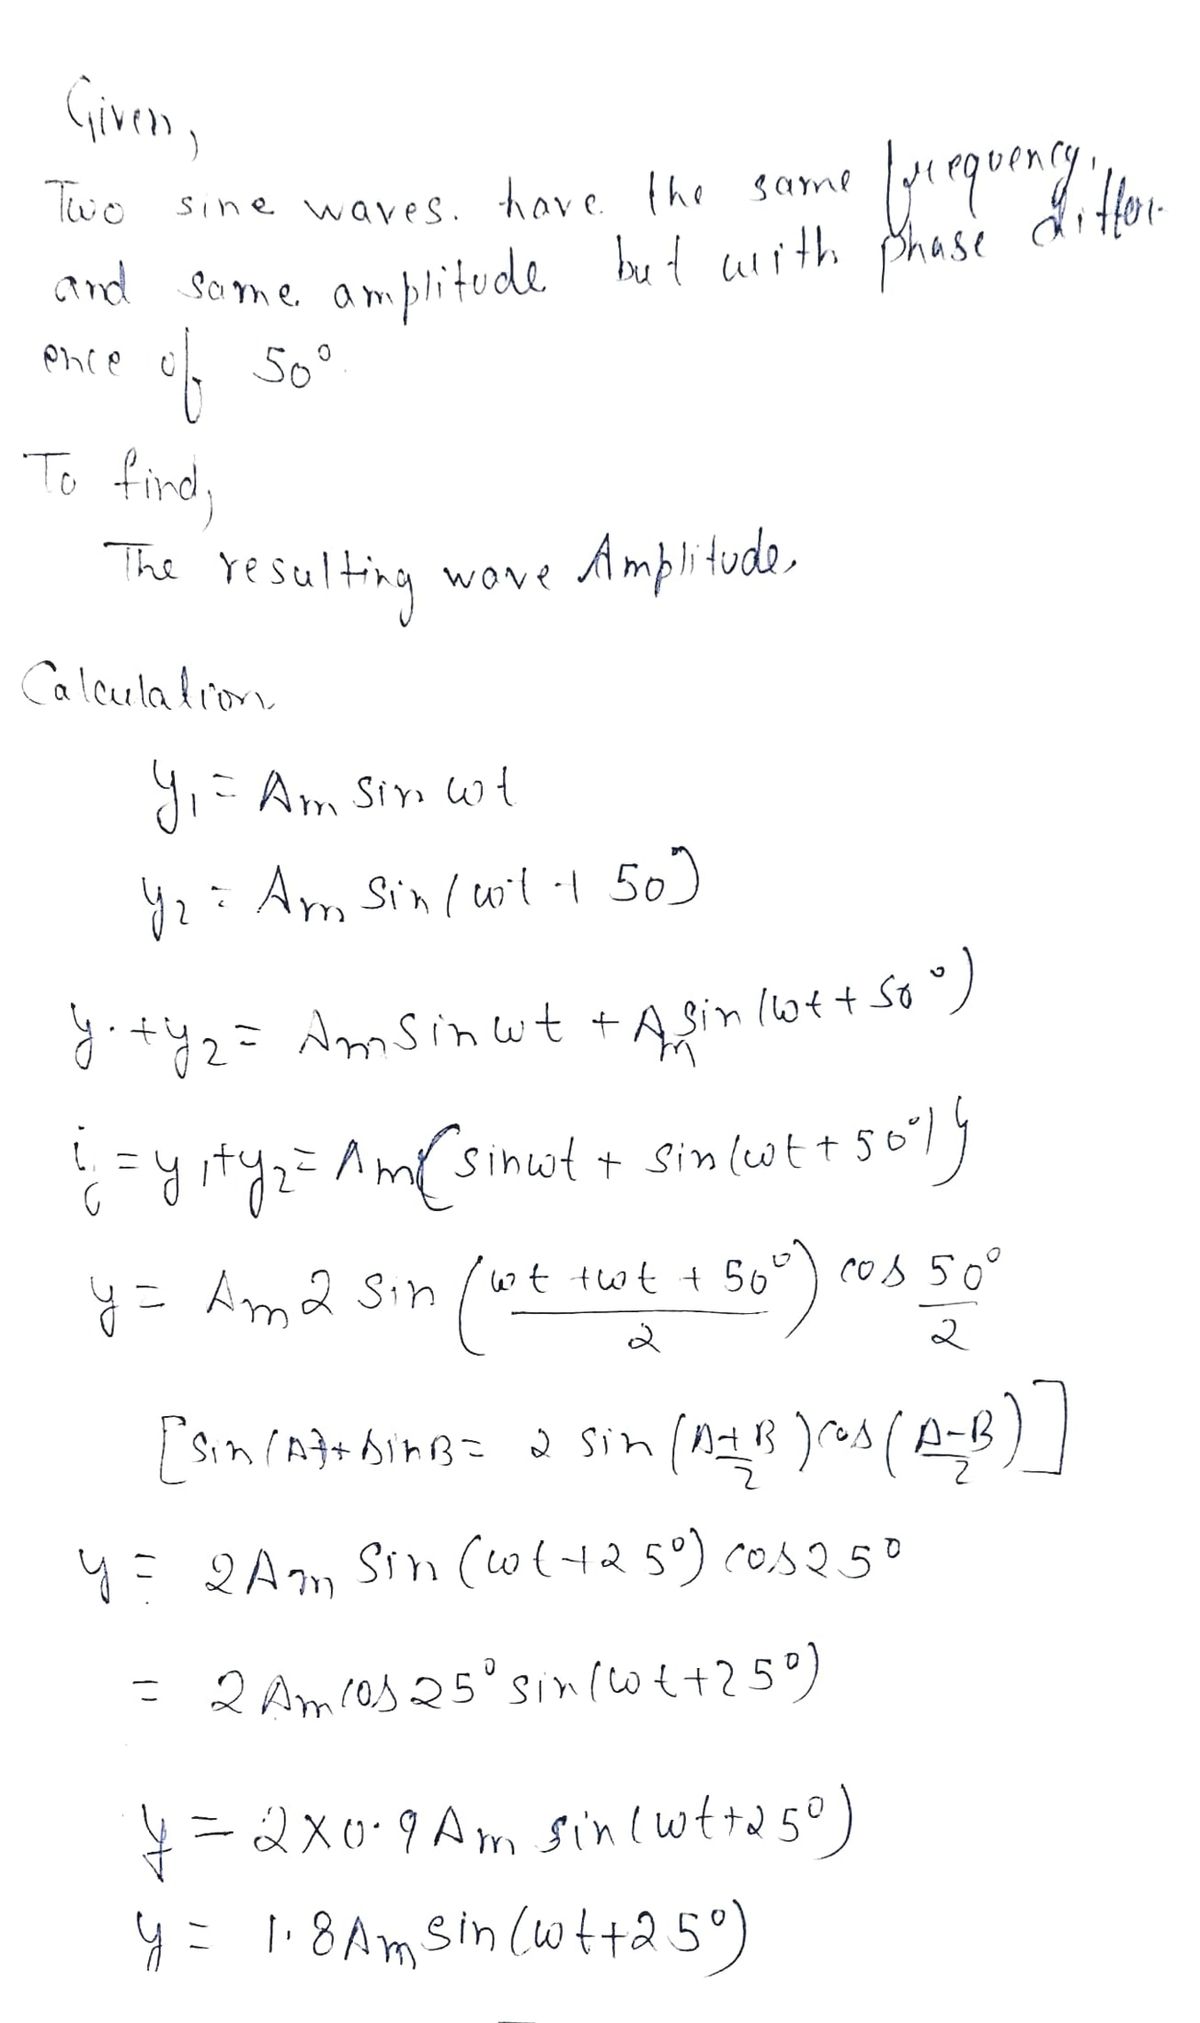 Given,
Two sine waves. have the same frequency,
and same amplitude but with phase differ-
ence of 50°.
To find,
The resulting wave Amplitude.
Calculation
y₁ = Am sin ωt
y₂ = Am sin(ωt + 50°)
y₁+y₂ = Am sin ωt + Am sin(ωt + 50°)
= y₁+y₂ = Am{sin ωt + sin(ωt + 50°)}
y = Am 2 sin (ωt + ωt + 50°)/2 cos 50°/2
[sin(A)+sinB = 2 sin (A+B/2) cos (A-B/2)]
y = 2Am sin(ωt+25°) cos25°
= 2Am cos25° sin(ωt+25°)
y = 2×0.9 Am sin(ωt+25°)
y = 1.8Am sin(ωt+25°)